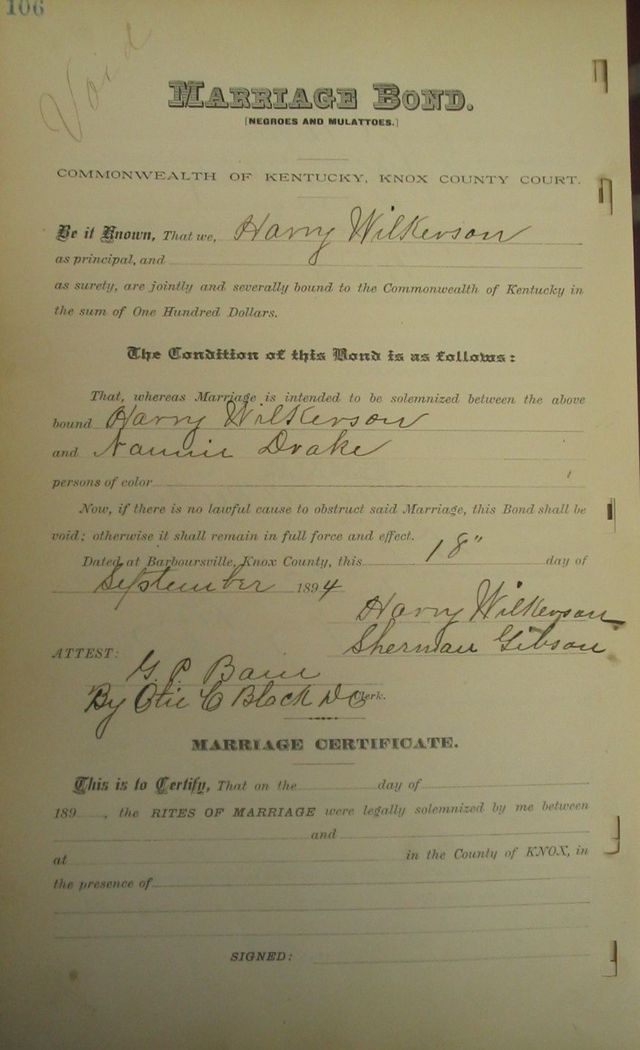 106
Void
MARRIAGE BOND.
[NEGROES AND MULATTOES.]
COMMONWEALTH OF KENTUCKY, KNOX COUNTY COURT.
Be it Known, That we, Harry Wilkerson
as principal, and
as surety, are jointly and severally bound to the Commonwealth of Kentucky in
the sum of One Hundred Dollars.
The Condition of this Bond is as follows:
That, whereas Marriage is intended to be solemnized between the above
bound Harry Wilkerson
and Nannie Drake
persons of color
Now, if there is no lawful cause to obstruct said Marriage, this Bond shall be
void; otherwise it shall remain in full force and effect.
Dated at Barboursville, Knox County, this 18" day of
September 1894
Harry Wilkerson
Sherman Gibson
ATTEST:
G. P. Bain
By Otie C Black DC Clerk.
MARRIAGE CERTIFICATE.
This is to Certify, That on the day of
189 , the RITES OF MARRIAGE were legally solemnized by me between
and
at in the County of KNOX, in
the presence of
SIGNED: